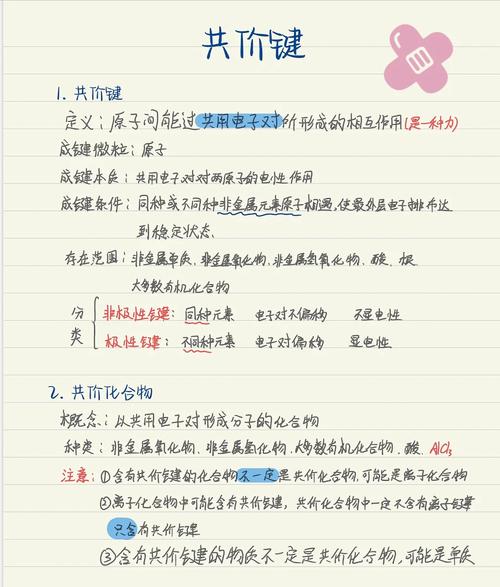 共价键
1. 共价键
定义：原子间能过共用电子对所形成的相互作用(是一种力)
成键微粒：原子
成键本质：共用电子对对两原子的电性作用
成键条件：同种或不同种非金属元素原子相遇，使最外层电子排布达
到稳定状态.
存在范围：非金属单质、非金属氧化物、非金属氢化物、酸、根
大多数有机化合物
分类
非极性键：同种元素 电子对不偏移 不显电性
极性键：不同种元素 电子对偏移 显电性
2. 共价化合物
概念：以共用电子对形成分子的化合物
种类：非金属氧化物、非金属氢化物、大多数有机化合物、酸、AlCl₃
注意：①含有共价键的化合物不一定是共价化合物，可能是离子化合物
②离子化合物中可能含有共价键，共价化合物中一定不含有离子键
只含有共价键
③含有共价键的物质不一定是共价化合物，可能是单质